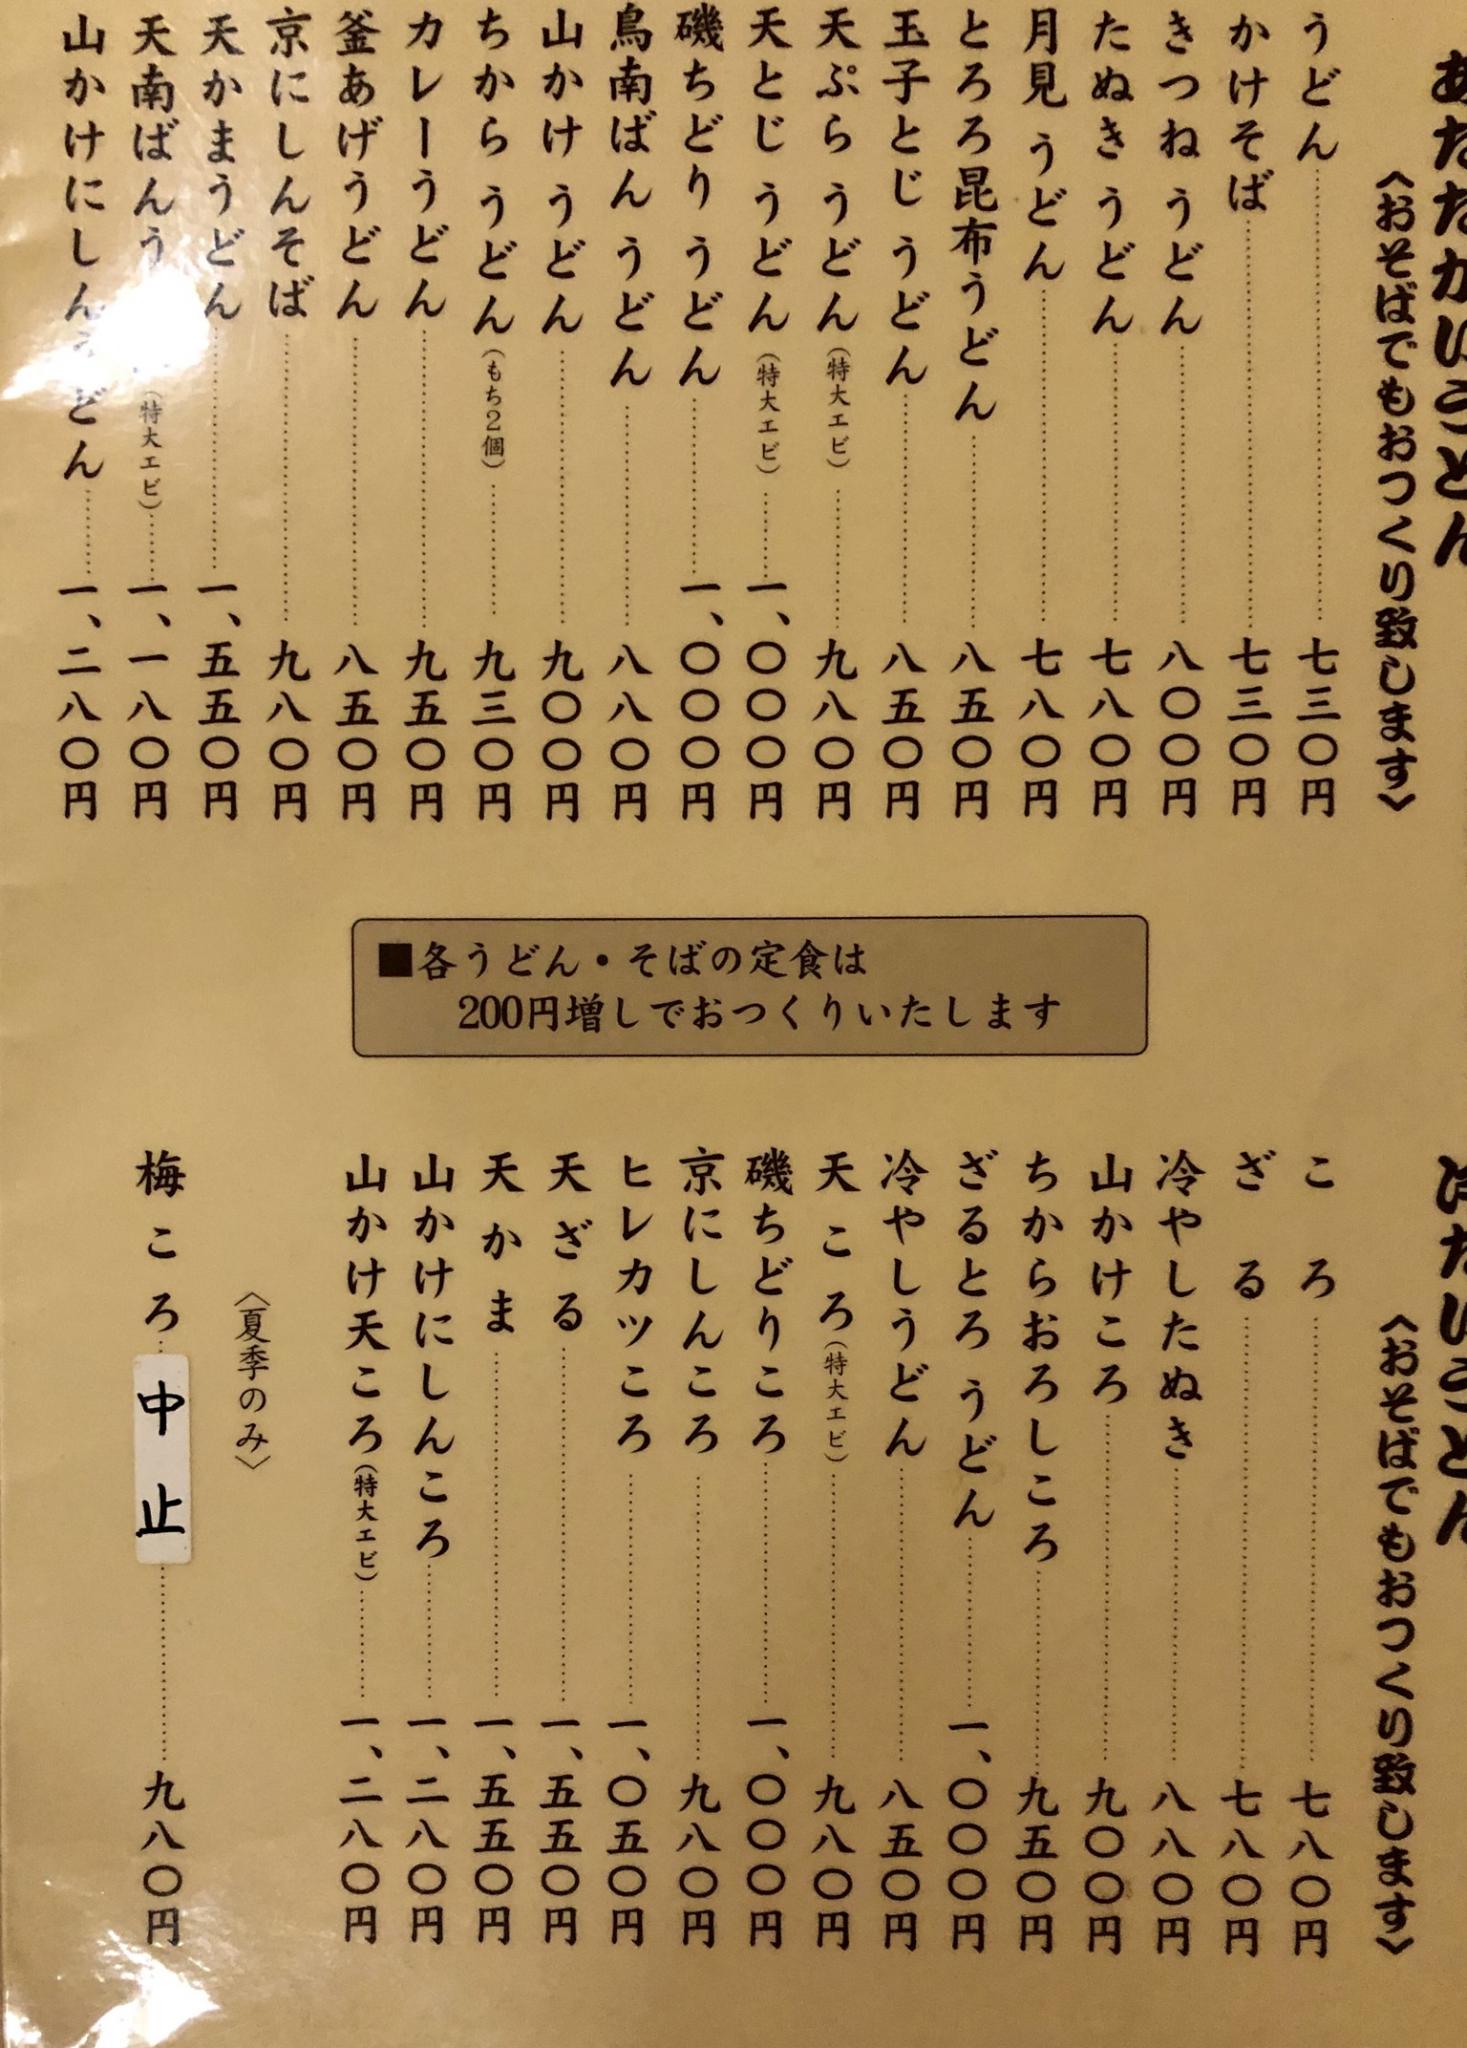 あたたかいうどん
〈おそばでもおつくり致します〉
うどん 七三〇円
かけそば 七三〇円
きつねうどん 八〇〇円
たぬきうどん 七八〇円
月見うどん 七八〇円
とろろ昆布うどん 八五〇円
玉子とじうどん 八五〇円
天ぷらうどん(特大エビ) 九八〇円
天とじうどん(特大エビ) 一、〇〇〇円
磯ちどりうどん 一、〇〇〇円
鳥南ばんうどん 八八〇円
山かけうどん 九〇〇円
ちからうどん(もち2個) 九三〇円
カレーうどん 九五〇円
釜あげうどん 八五〇円
京にしんそば 九八〇円
天かまうどん 一、五五〇円
天南ばんう(特大エビ) 一、一八〇円
山かけにしんうどん 一、二八〇円
■各うどん・そばの定食は
200円増しでおつくりいたします
冷たいうどん
〈おそばでもおつくり致します〉
ころ 七八〇円
ざる 七八〇円
冷やしたぬき 八八〇円
山かけころ 九〇〇円
ちからおろしころ 九五〇円
ざるとろろうどん 一、〇〇〇円
冷やしうどん 八五〇円
天ころ(特大エビ) 九八〇円
磯ちどりころ 一、〇〇〇円
京にしんころ 九八〇円
ヒレカツころ 一、〇五〇円
天ざる 一、五五〇円
天かま 一、五五〇円
山かけにしんころ 一、二八〇円
山かけ天ころ(特大エビ) 一、二八〇円
〈夏季のみ〉
梅ころ 中止 九八〇円